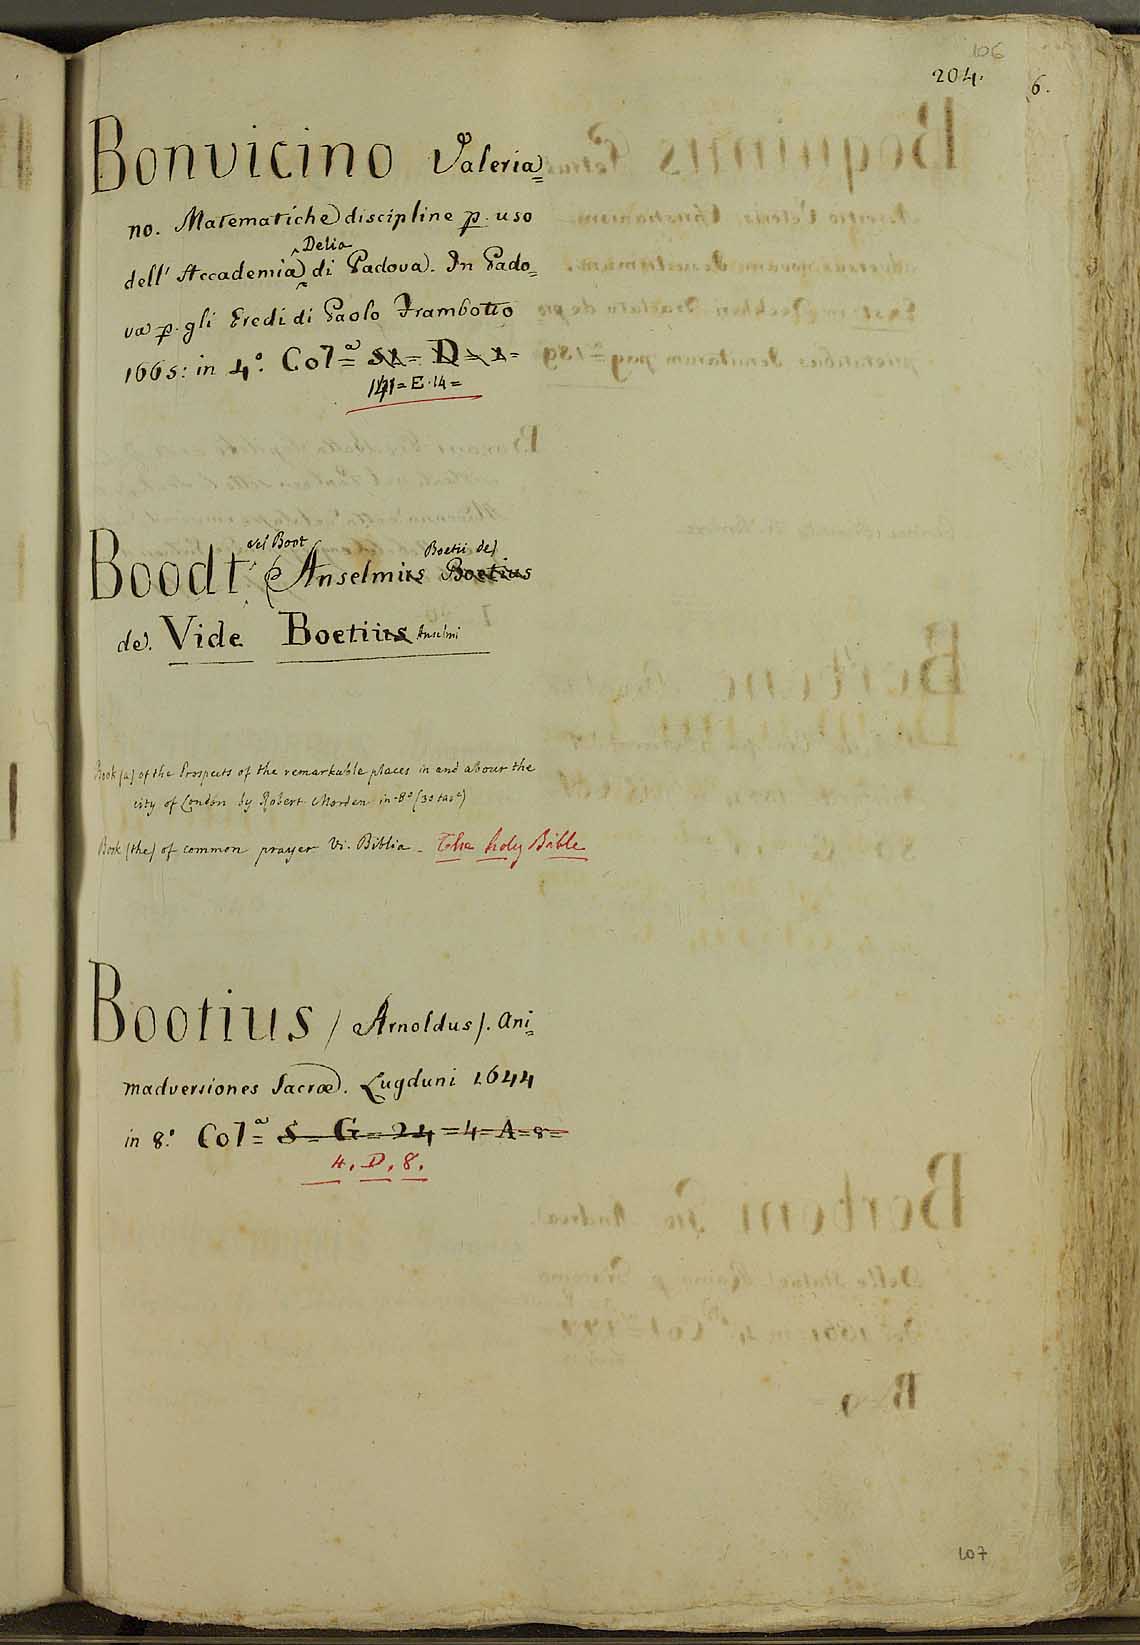 106
204.
6.
Bonvicino Valeria=
no. Matematiche discipline p. uso
Delia
dell' Accademia di Padova. In Pado=
va p. gli Eredi di Paolo Frambotto
1665: in 4.° Col=a S1 = D = 1 =
141 = E. 14 =
vel Boot
Boetii de)
Boodt (Anselmus Boetius
de). Vide Boetius Anselmi
Book (a) of the Prospects of the remarkable places in and about the
city of London by Robert Morden in-8° (30 tav.e)
Book (the) of common prayer Vi. Biblia - The holy Bible
Bootius / Arnoldus /. Ani=
madversiones Sacræ. Lugduni 1644
in 8.° Col=a S = G = 24 = 4 = A = 8 =
4. D. 8.
107